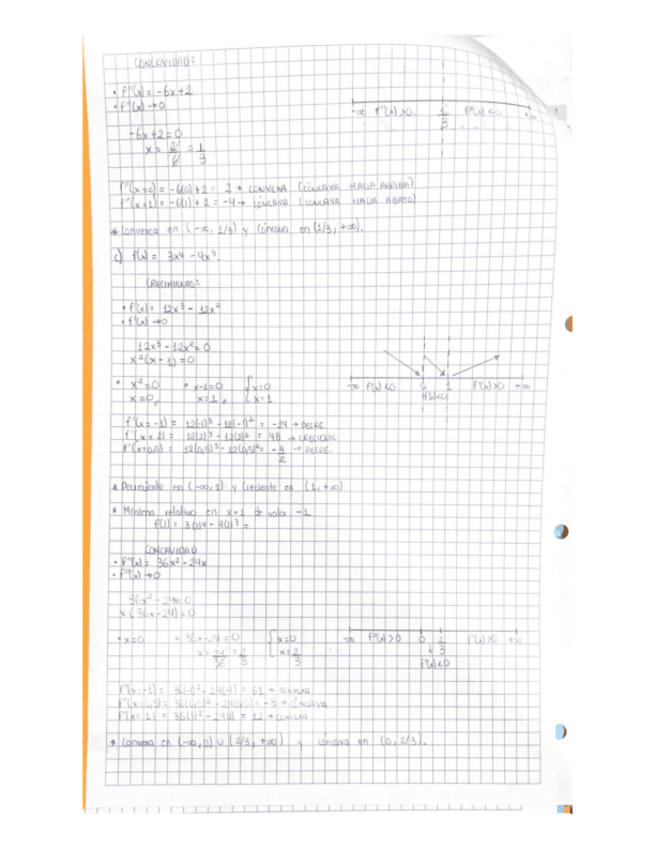 CONCAVIDAD:
• f''(x) = -6x+2
• f''(x) → 0
-∞ f''(x)>0 1/3 f''(x)<0 +∞
-6x+2=0
x = 2/6 = 1/3
f''(x=0) = -6(0)+2 = 2 → CONVEXA (CÓNCAVA HACIA ARRIBA)
f''(x=1) = -6(1)+2 = -4 → CÓNCAVA (CÓNCAVA HACIA ABAJO)
* Convexa en (-∞, 1/3) y Cóncava en (1/3, +∞).
c) f(x) = 3x4 - 4x³.
CRECIMIENTO:
• f'(x) = 12x³ - 12x²
• f'(x) → 0
12x³ - 12x² = 0
x²(x-1) = 0
• x²=0 • x-1=0 { x=0
x=0 x=1 x=1
-∞ f'(x)<0 0 1 f'(x)>0 +∞
f'(x)<0
f'(x=-1) = 12(-1)³ - 12(-1)² = -24 → DECRE.
f'(x=2) = 12(2)³ - 12(2)² = 48 →
f'(x=0,5) = 12(0,5)³ - 12(0,5)² = -3/2 → DECRE.
* Decreciente en (-∞, 1) y Creciente en (1, +∞)
* Mínimo relativo en x=1 de valor -1
f(1) = 3(1)4 - 4(1)³ =
CONCAVIDAD
• f''(x) = 36x² - 24x
• f''(x) → 0
36x² - 24x = 0
x(36x-24) = 0
• x=0 • 36x-24=0 { x=0
x = 24/36 = 2/3 x = 2/3
-∞ f''(x)>0 0 2/3 f''(x)>0 +∞
f''(x)<0
f''(x=-1) = 36(-1)² - 24(-1) = 61 → CONVEXA
f''(x=0,5) = 36(0,5)² - 24(0,5) = -3 → CÓNCAVA
f''(x=1) = 36(1)² - 24(1) = 12 → CONVEXA
* Convexa en (-∞, 0) ∪ (2/3, +∞) y cóncava en (0, 2/3).